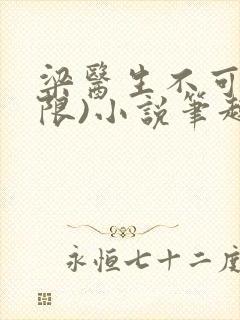 梁醫生不可
限)小說筆趣
永恒七十二度